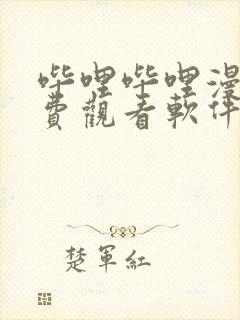 哔哩哔哩漫
費觀看軟件
楚軍紅